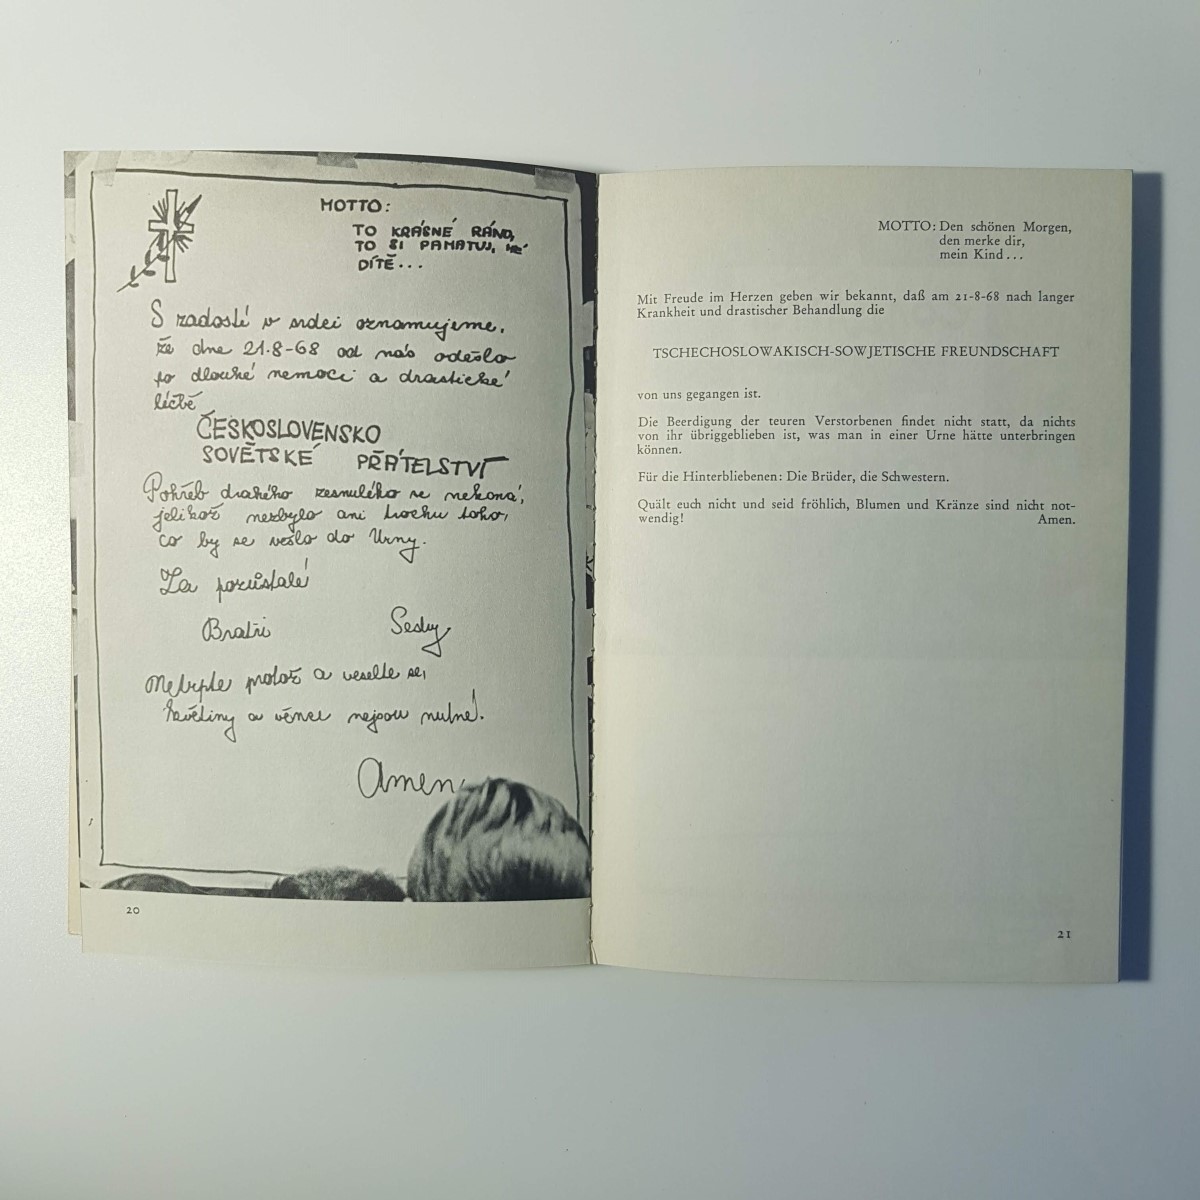 MOTTO:
TO KRÁSNÉ RÁNO,
TO SI PAMATUJ, MÉ
DÍTĚ...
S radostí v srdci oznamujeme,
že dne 21.8-68 od nás odešlo
po dlouhé nemoci a drastické
léčbě
ČESKOSLOVENSKO
SOVĚTSKÉ PŘÁTELSTVÍ
Pohřeb drahého zesnulého se nekoná,
jelikož nezbylo ani trochu toho,
co by se vešlo do Urny.
Za pozůstalé
Bratři Sestry
Netrpte protož a veselte se,
květiny a věnce nejsou nutné!
Amen
20
MOTTO: Den schönen Morgen,
den merke dir,
mein Kind...
Mit Freude im Herzen geben wir bekannt, daß am 21-8-68 nach langer
Krankheit und drastischer Behandlung die
TSCHECHOSLOWAKISCH-SOWJETISCHE FREUNDSCHAFT
von uns gegangen ist.
Die Beerdigung der teuren Verstorbenen findet nicht statt, da nichts
von ihr übriggeblieben ist, was man in einer Urne hätte unterbringen
können.
Für die Hinterbliebenen: Die Brüder, die Schwestern.
Quält euch nicht und seid fröhlich, Blumen und Kränze sind nicht not-
wendig! Amen.
21